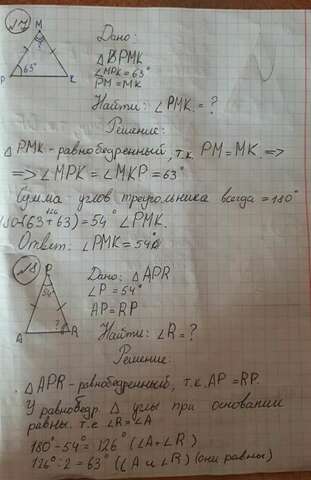 17
M
?
P 65° K
Дано:
△ PMK
∠MPK = 63°
PM = MK
Найти: ∠PMK = ?
Решение:
△ PMK - равнобедренный, т.к. PM = MK. =>
=> ∠MPK = ∠MKP = 63°
Сумма углов треугольника всегда = 180°
180-(63+63) = 54° ∠PMK.
Ответ: ∠PMK = 54°
18
P
54°
A ? R
Дано: △APR
∠P = 54°
AP = RP
Найти: ∠R = ?
Решение:
△ APR - равнобедренный, т.к. AP = RP.
У равнобедр. △ углы при основании
равны. т.е ∠R = ∠A
180° - 54° = 126° (∠A + ∠R)
126° : 2 = 63° (∠A и ∠R) (они равны)